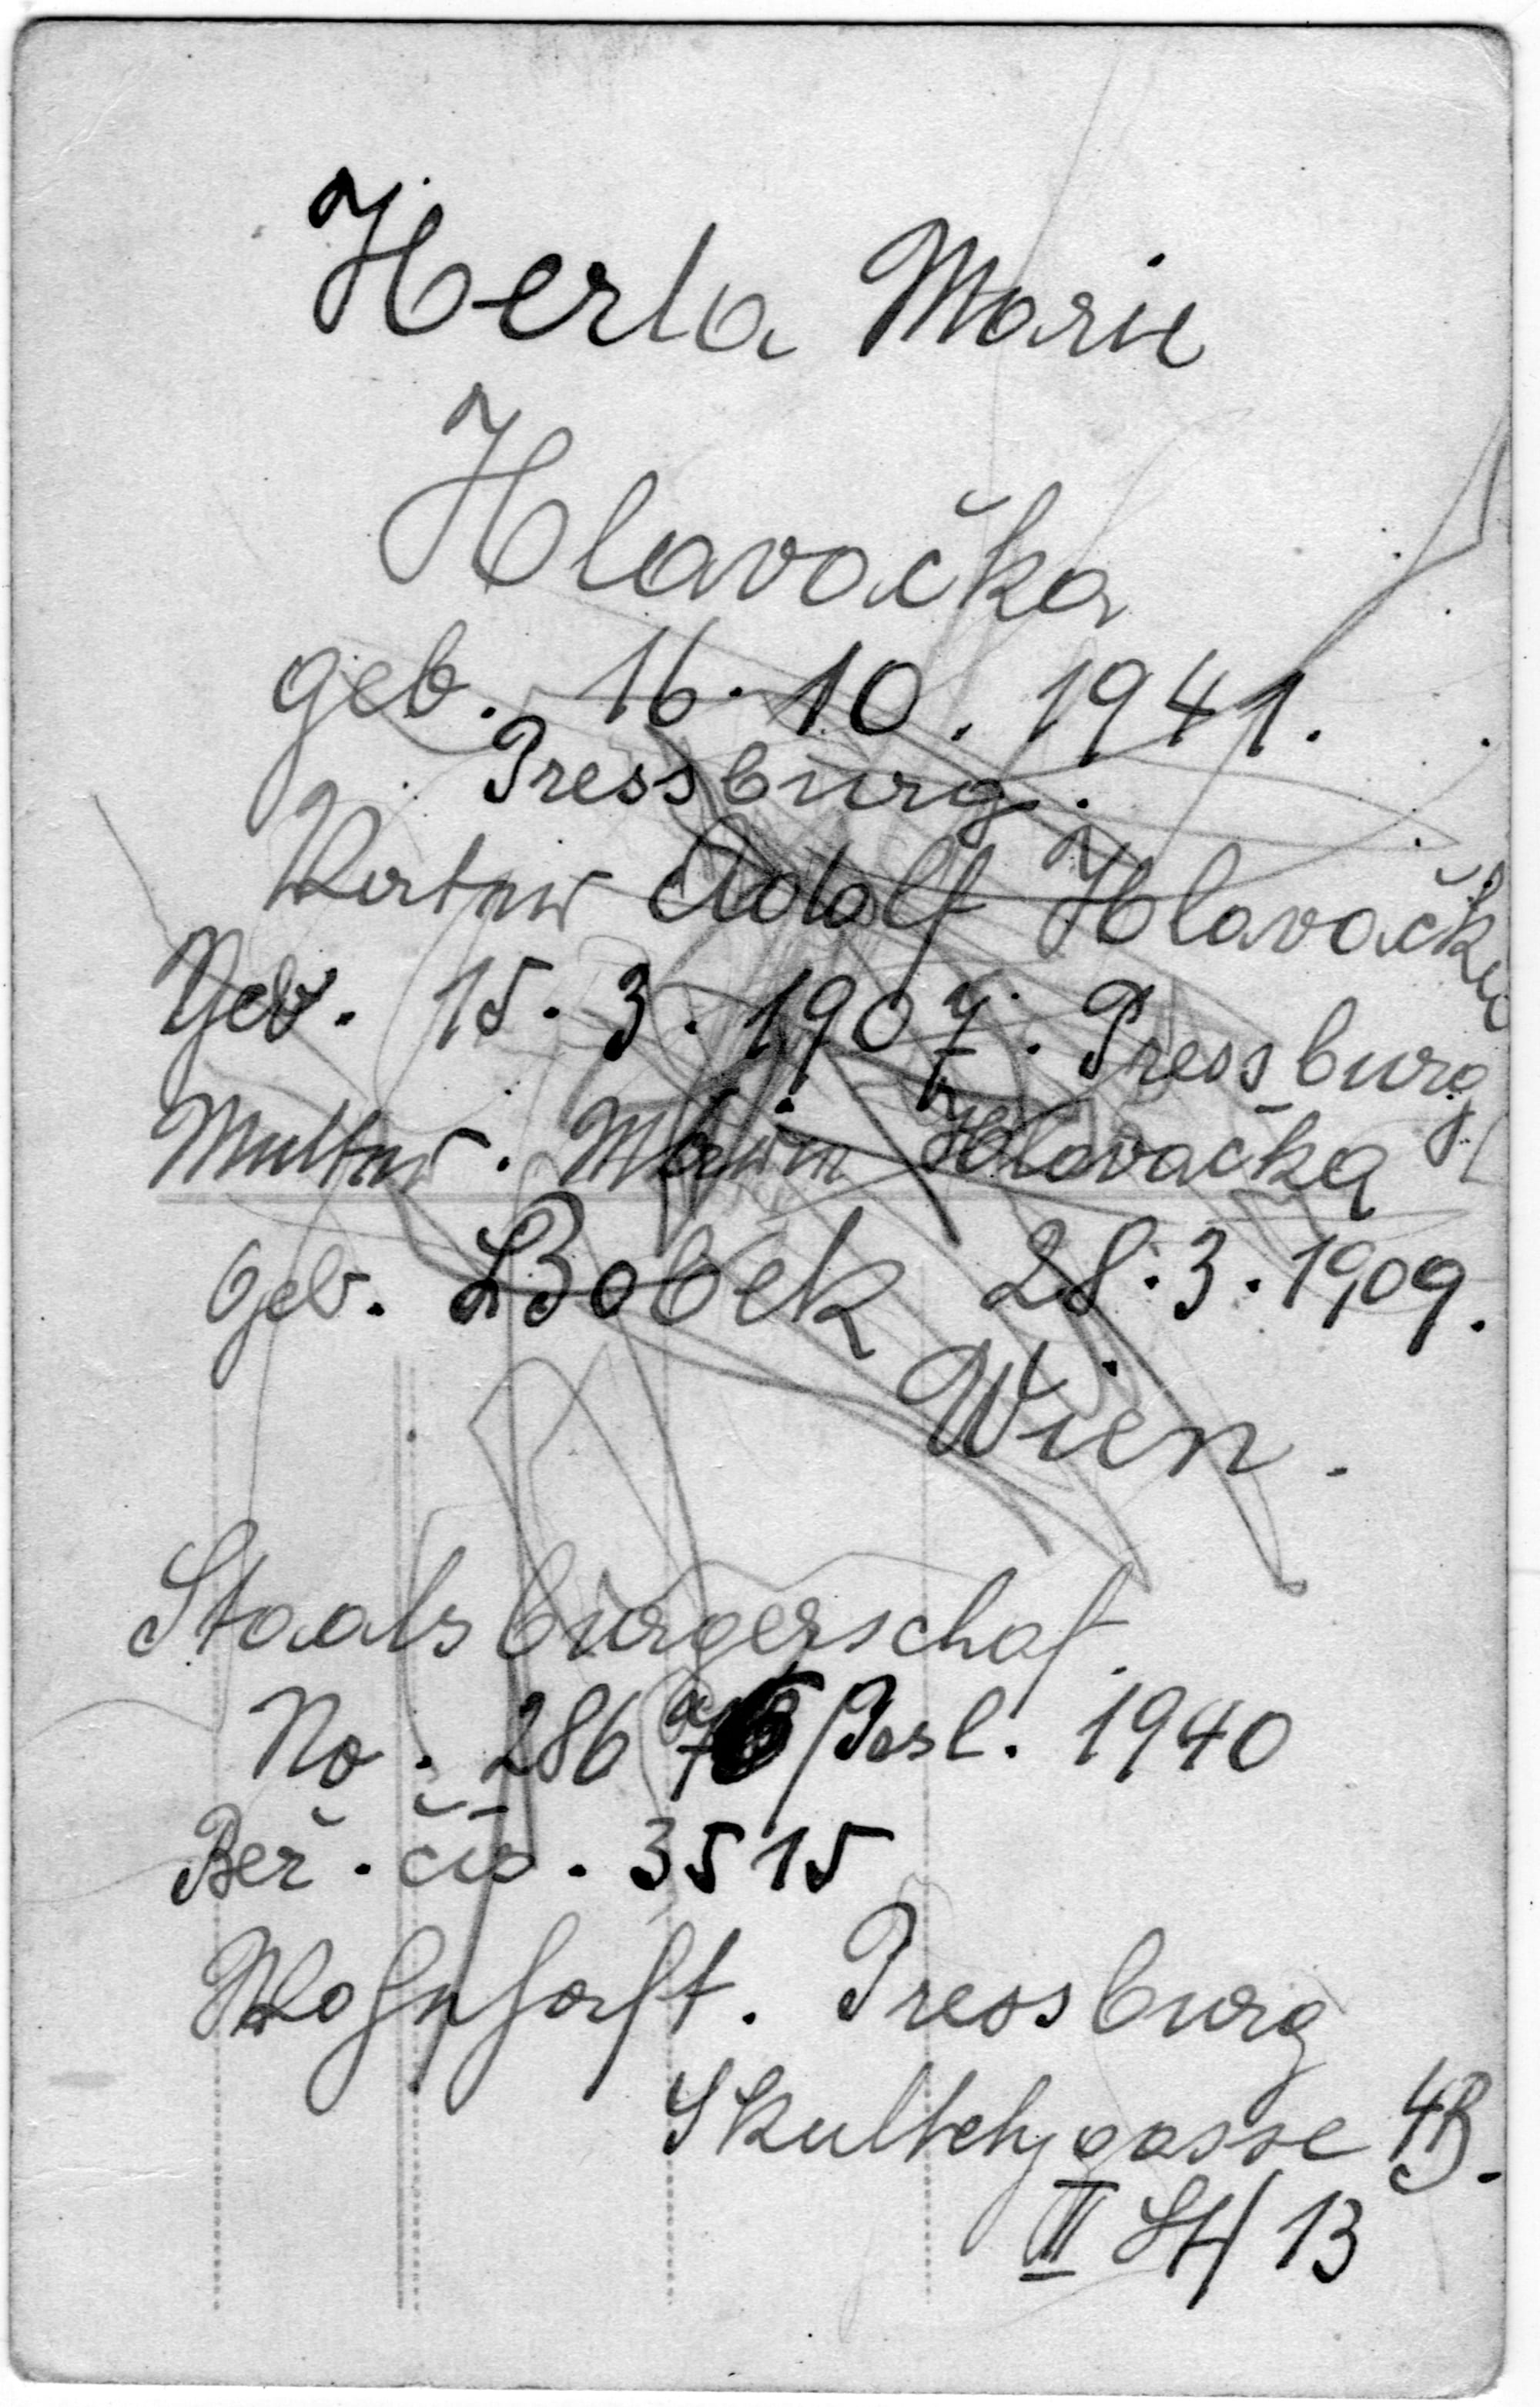 Herta Marie
Hlavačka
geb. 16. 10. 1941.
Pressburg.
Vater Adolf Hlavačka
Geb. 15. 3. 1907. Pressburg
Mutter. Maria Hlavačka
geb. Bobek 28. 3. 1909.
Wien.
Staatsbürgerschaf.
No. 286 /Pres. 1940
Beř. čís. 3515
Wohnhaft. Pressburg
Skultetygasse 4B.
II St/ 13